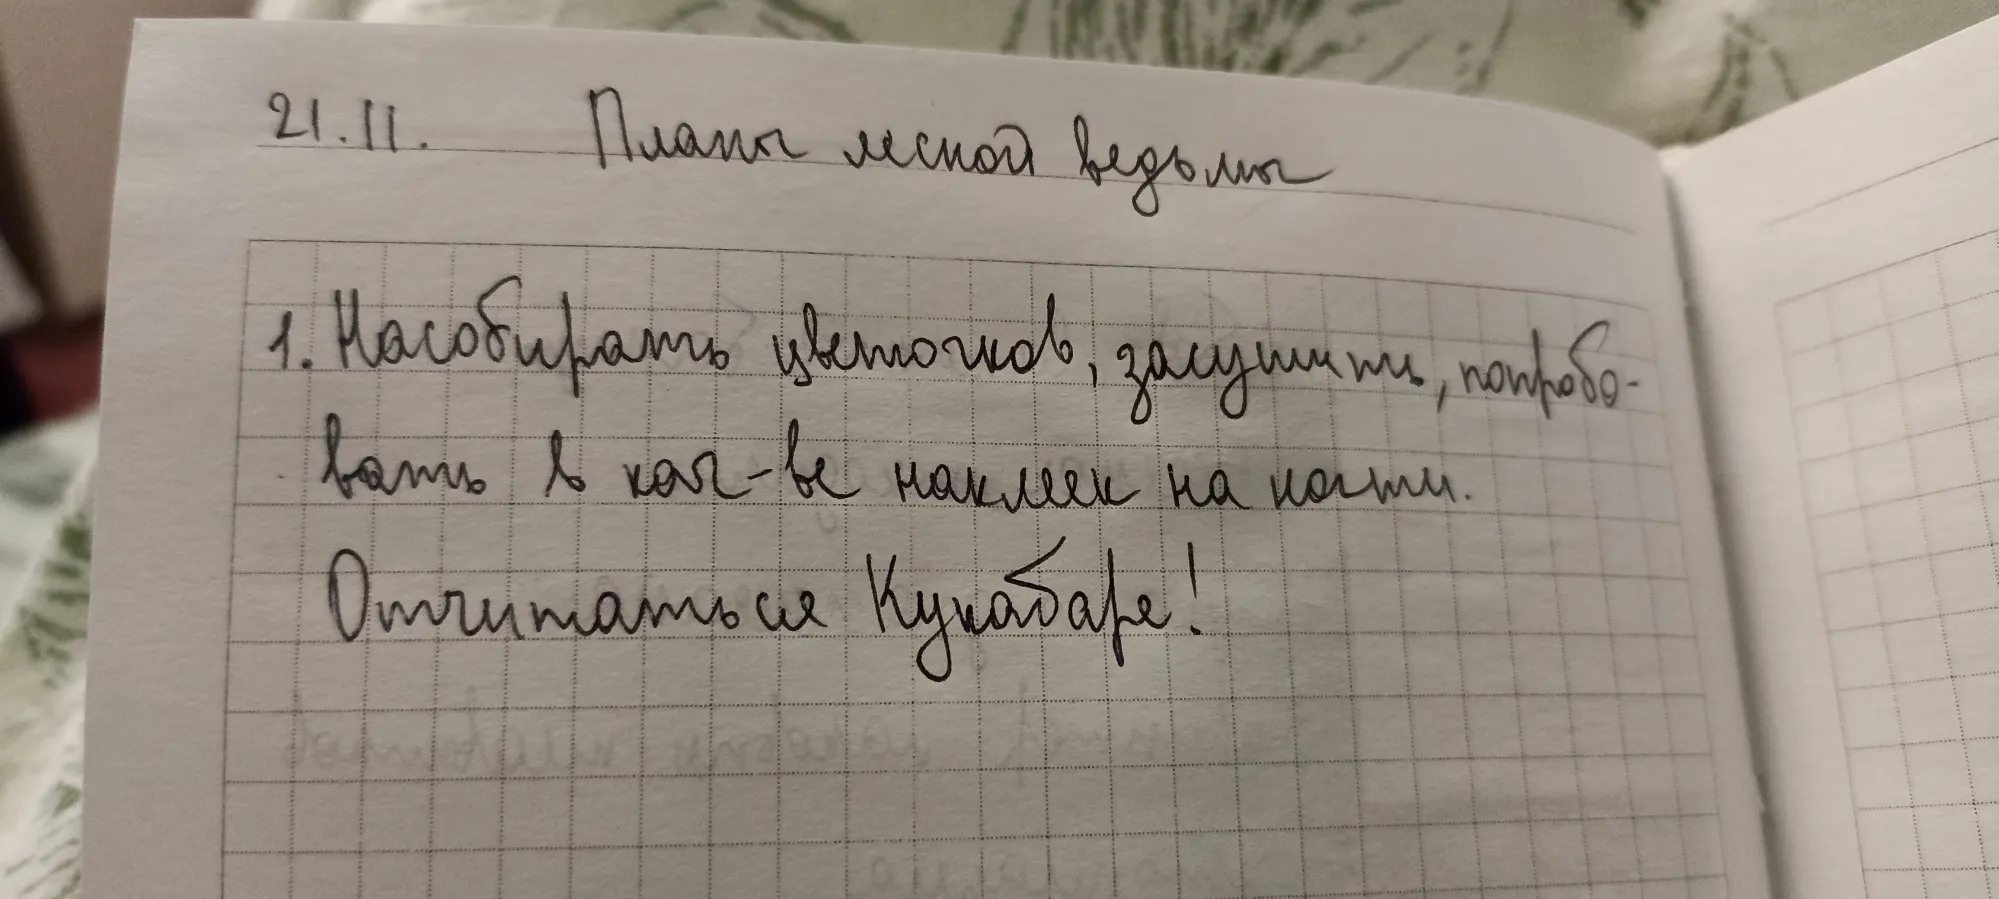 21.11. Планы лесной ведьмы
1. Насобирать цветочков, засушить, попробо-
вать в кач-ве наклеек на ногти.
Отчитаться Кукабаре!